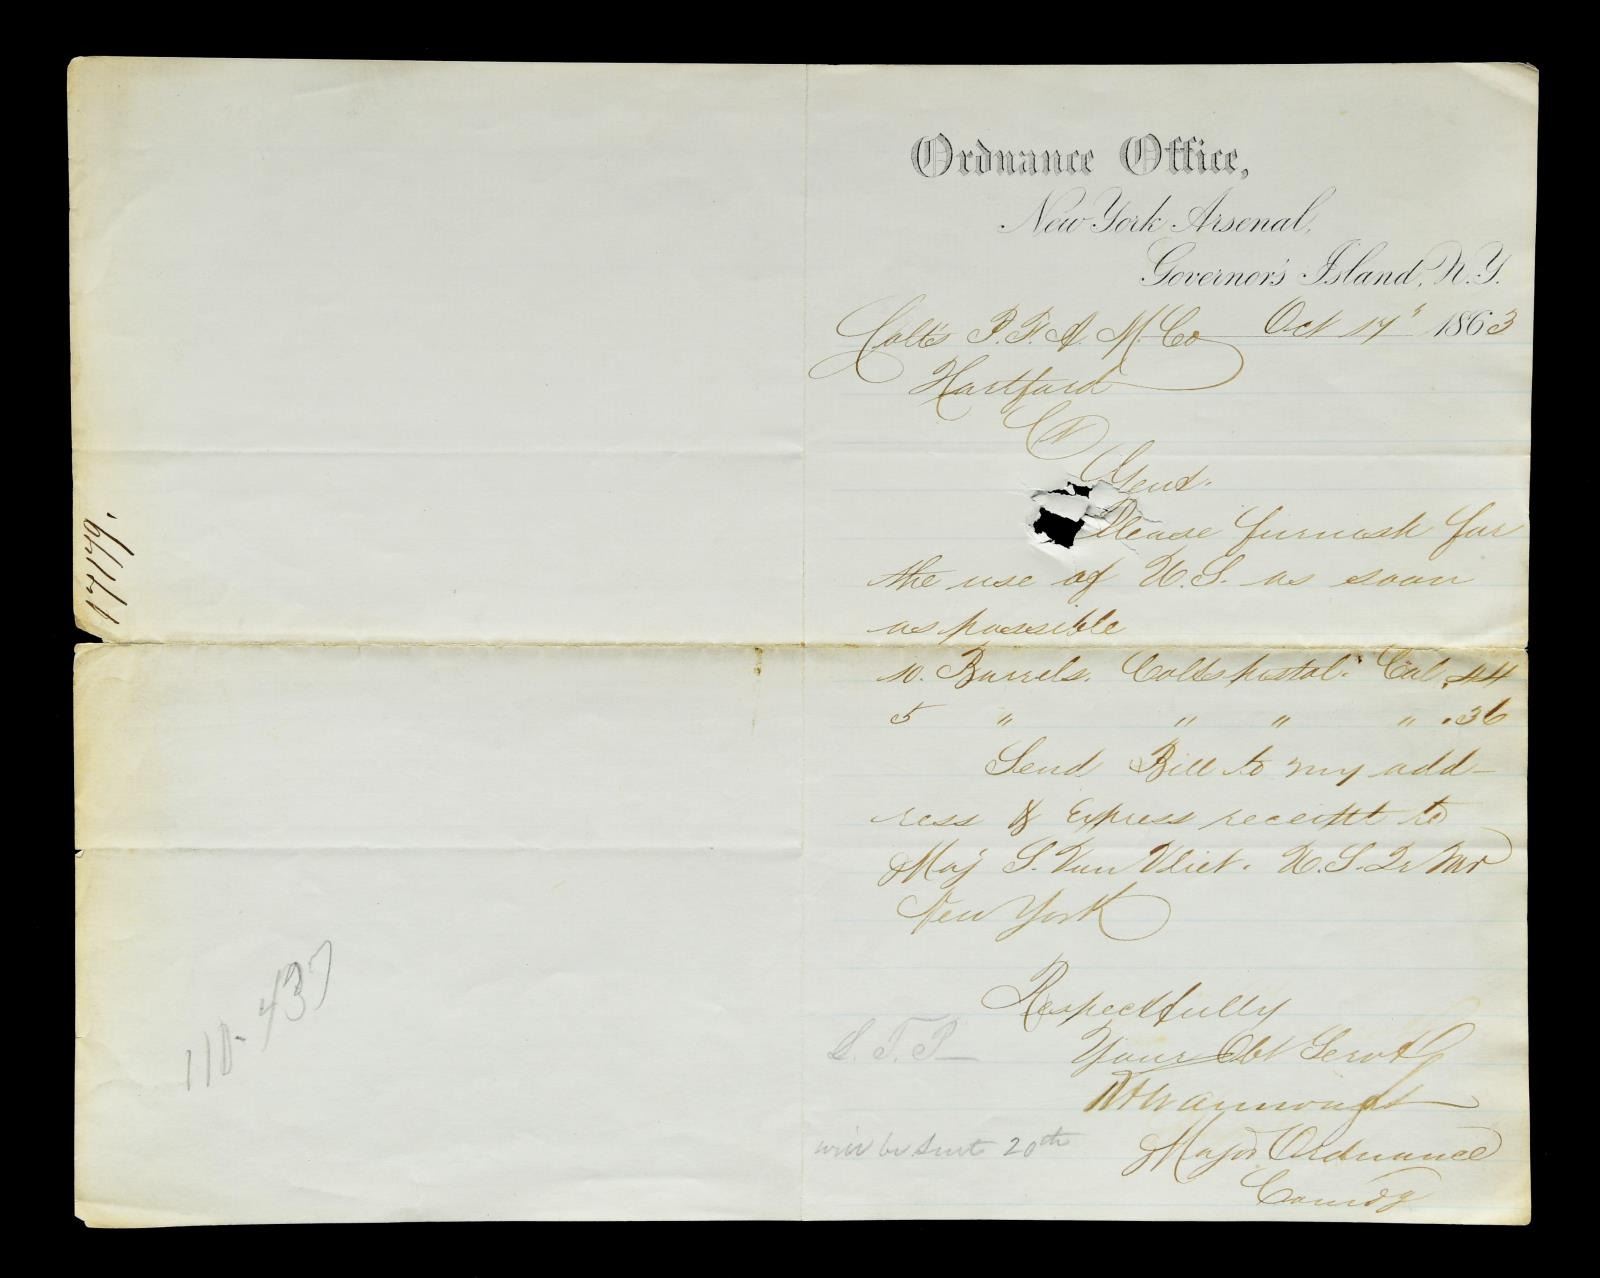 Ordnance Office,
New York Arsenal,
Governor's Island, N.Y.
Oct 17" 1863
Colt's P. F. A. M. Co
Hartford
Ct
Gent.
Please furnish for
the use of U.S. as soon
as possible
10. Barrels. Colts pistol. Cal .44
5 " " " " .36
Send Bill to my add-
ress & Express receipt to
Maj S. Van Vliet. U.S. Qr Mr
New York
Respectfully
Your Obt Servt
Major Ordnance
Comdg
S. T. P.
will be sent 20th
17179.
110-437